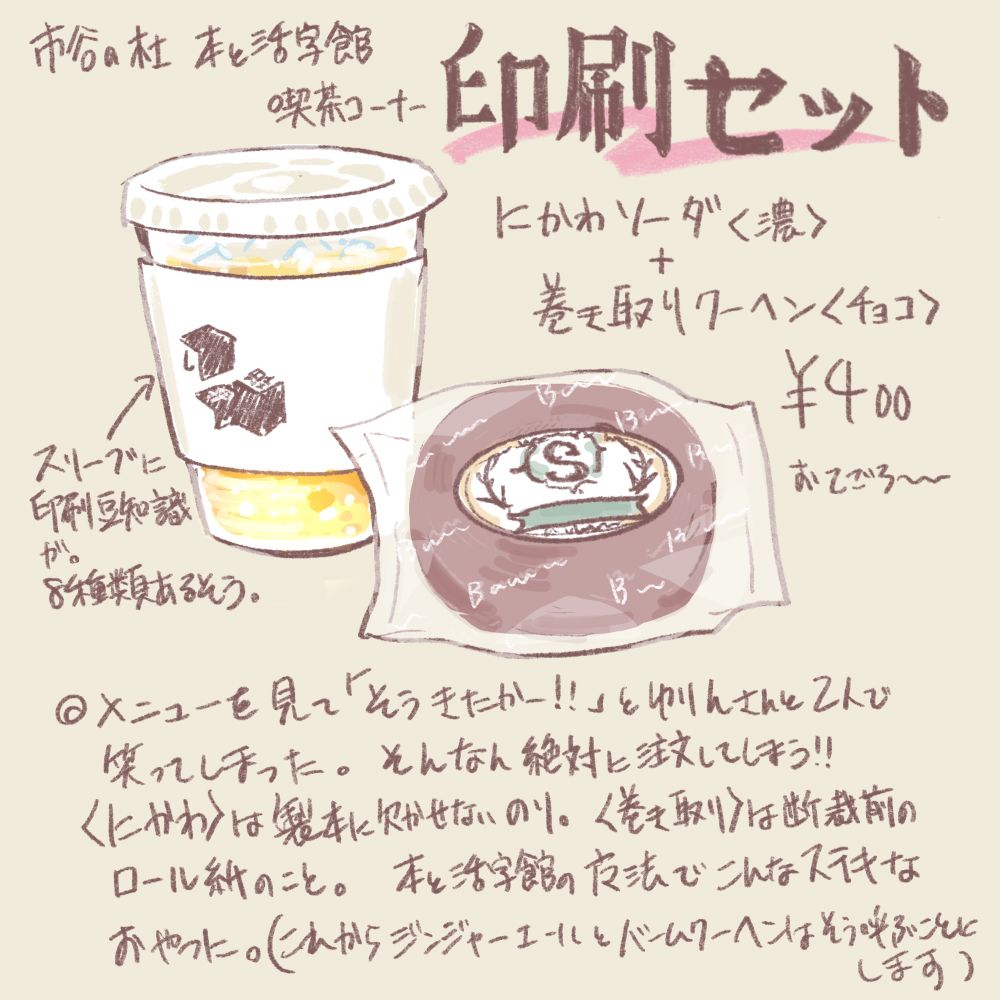 市谷の杜 本と活字館
喫茶コーナー
印刷セット
にかわソーダ〈濃〉
+
巻き取りクーヘン〈チョコ〉
¥400
おてごろ〜〜
スリーブに
印刷豆知識
が。
8種類あるそう。
S
◎メニューを見て「そうきたかー!!」とゆりんさんと2人で
笑ってしまった。そんなん絶対に注文してしまう!!
〈にかわ〉は製本に欠かせないのり。〈巻き取り〉は断裁前の
ロール紙のこと。 本と活字館の魔法でこんなステキな
おやつに。(これからジンジャーエールとバームクーヘンはそう呼ぶことに
します)